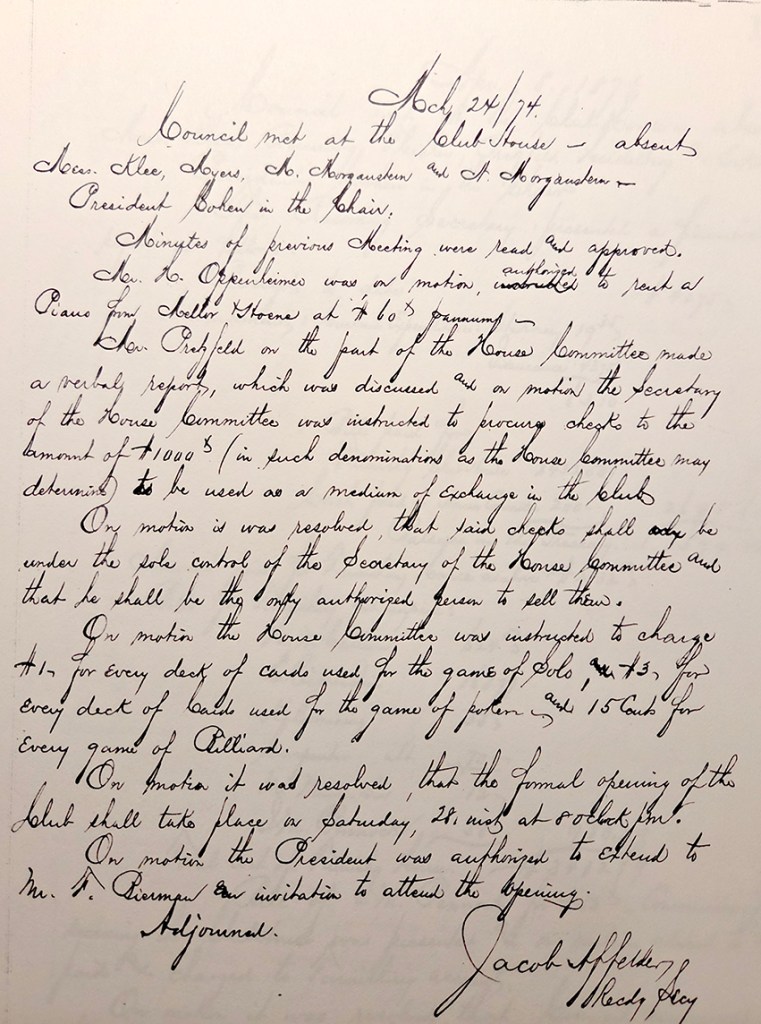 Mch 24/74.
Council met at the Club House – absent
Mess. Klee, Myers, M. Morganstern and N. Morganstern –
President Cohen in the Chair.
Minutes of previous Meeting were read and approved.
Mr. H. Oppenheimer was on motion, authorized to rent a
Piano from Mellor & Hoene at $60 –
Mr. Pretzfeld on the part of the House Committee made
a verbal report, which was discussed and on motion the Secretary
of the House Committee was instructed to procure checks to the
amount of $1000 (in such denominations as the House Committee may
determine) to be used as a medium of Exchange in the Club
On motion is was resolved, that said checks shall be
under the sole control of the Secretary of the House Committee and
that he shall be the only authorized person to sell them.
On motion the House Committee was instructed to charge
$1– for every deck of cards used for the game of Solo, $3– for
every deck of Cards used for the game of poker – and 15 Cents for
every game of Billiard.
On motion it was resolved, that the formal opening of the
Club shall take place on Saturday, 28, inst, at 8 oClock pm.
On motion the President was authorized to Extend to
Mr. F. Bierman an invitation to attend the opening.
Adjourned.
Jacob Affelder,
Recdg Secy